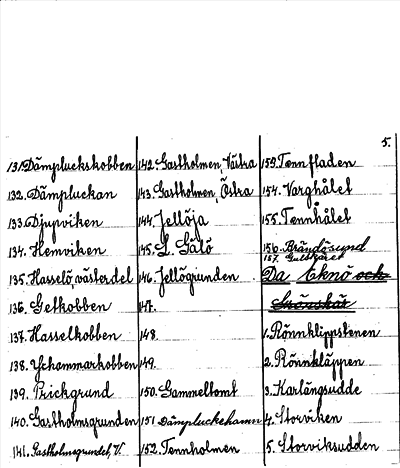 5.
131. Dämpluckskobben
132. Dämpluckan
133. Djupviken
134. Hemviken
135. Hasselö, västerdel
136. Getkobben
137. Hasselkobben
138. Yxhammarkobben
139. Prickgrund
140. Gastholmsgrunden
141. Gastholmsgrundet, V.
142. Gastholmen, Västra
143. Gastholmen, Östra
144. Jellöja
145. L. Sälö
146. Jellögrunden
147.
148.
149.
150. Gammeltomt
151. Dämpluckehamn
152. Tennholmen
153. Tennfladen
154. Varghålet
155. Tennhålet
156. Brändösund
157. Gullskäret
Da Eknö och
Grönskär
1. Rönnklippstenen
2. Rönnkläppen
3. Karlängsudde
4. Storviken
5. Storviksudden